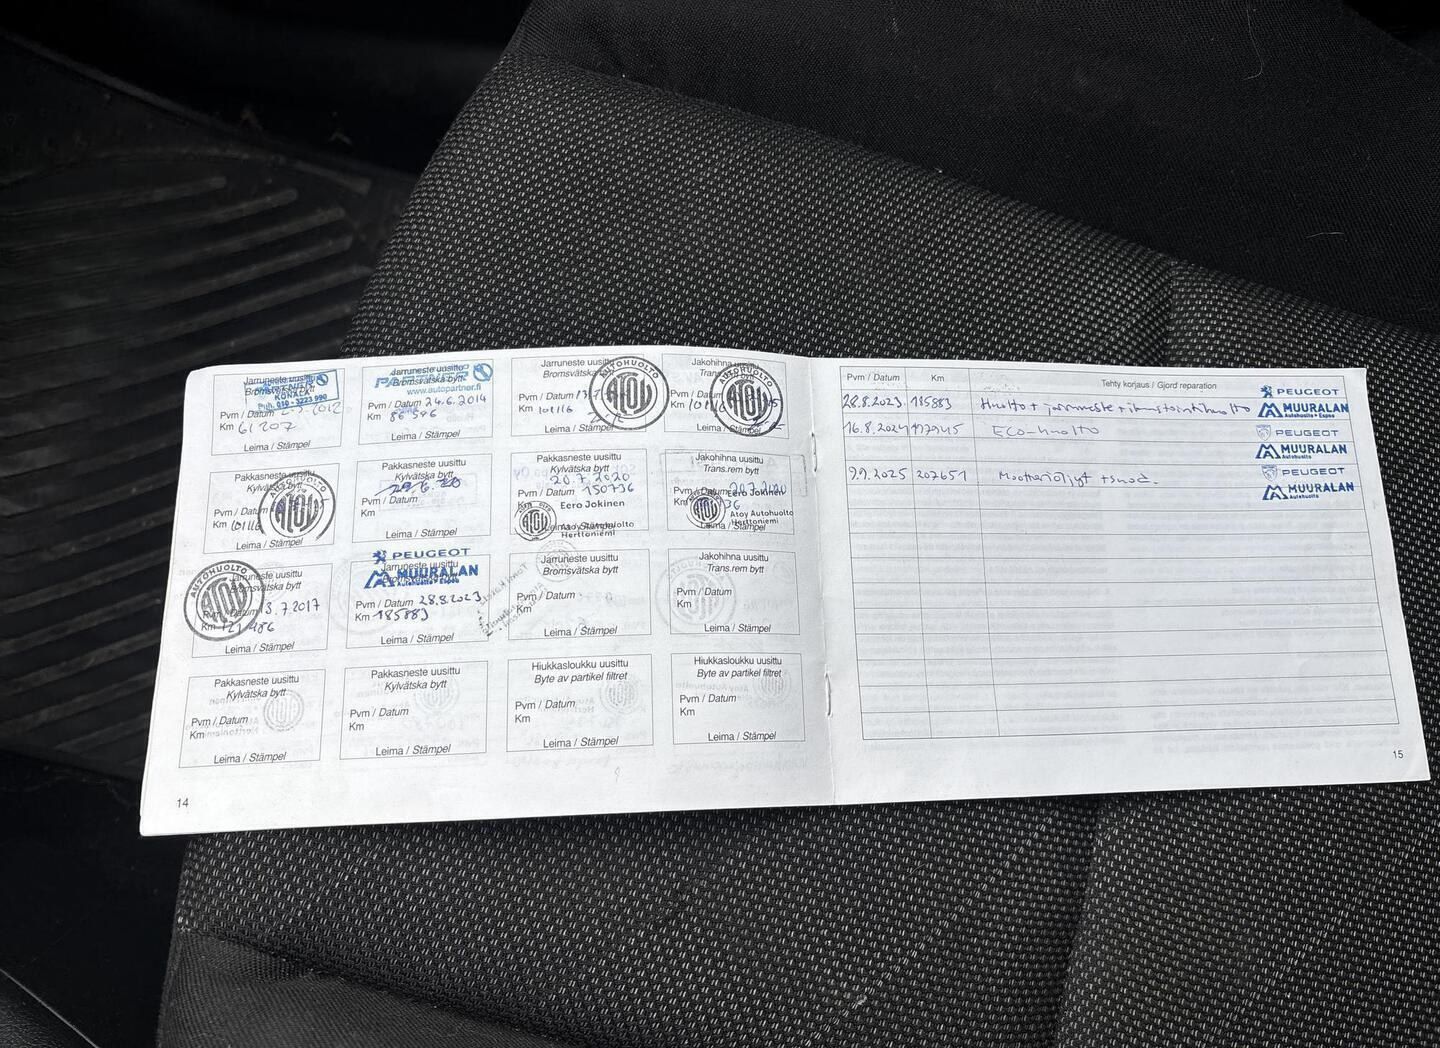 Jarruneste uusittu
Bromsvätska bytt
KONALA
Puh. 010 - 3223 990
Pvm / Datum 2012
Km 61 207
Leima / Stämpel
Jarruneste uusittu
Bromsvätska bytt
www.autopartner.fi
Pvm / Datum 24.6.2014
Km 86 596
Leima / Stämpel
Jarruneste uusittu
Bromsvätska
AUTOHUOLTO
ATOY
Pvm / Datum
Km 101116
Leima / Stämpel
Jakohihna
Trans.
AUTOHUOLTO
ATOY
Pvm / Datum
Km 101116
Leima / Stämpel
Pakkasneste uusittu
Kylvätska bytt
Pvm / Datum
Km 101116
Leima / Stämpel
Pakkasneste uusittu
Kylvätska bytt
Pvm / Datum
Km
Leima / Stämpel
Pakkasneste uusittu
Kylvätska bytt
20.7.2020
Pvm / Datum 150736
Km Eero Jokinen
ATOY Atoy Autohuolto
Leima / Stämpel
Herttoniemi
Jakohihna uusittu
Trans.rem bytt
Pvm / Datum 20.7.2020
Eero Jokinen
Atoy Autohuolto
Herttoniemi
Leima / Stämpel
AUTOHUOLTO
Jarruneste uusittu
Bromsvätska bytt
Pvm / Datum 13.7.2017
Km 121 486
Leima / Stämpel
PEUGEOT
MUURALAN
Autohuolto • Espoo
Jarruneste uusittu
Bromsvätska bytt
Pvm / Datum 28.8.2023
Km 185883
Leima / Stämpel
Jarruneste uusittu
Bromsvätska bytt
Pvm / Datum
Km
Leima / Stämpel
Jakohihna uusittu
Trans.rem bytt
Pvm / Datum
Km
Leima / Stämpel
Pakkasneste uusittu
Kylvätska bytt
Pvm / Datum
Km
Leima / Stämpel
Pakkasneste uusittu
Kylvätska bytt
Pvm / Datum
Km
Leima / Stämpel
Hiukkasloukku uusittu
Byte av partikel filtret
Pvm / Datum
Km
Leima / Stämpel
Hiukkasloukku uusittu
Byte av partikel filtret
Pvm / Datum
Km
Leima / Stämpel
14
Pvm / Datum Km Tehty korjaus / Gjord reparation
28.8.2023 185883 Huolto + jarruneste + ilmastointihuolto PEUGEOT
MUURALAN
Autohuolto • Espoo
16.8.2024 197945 Eco-huolto PEUGEOT
MUURALAN
Autohuolto
9.9.2025 207651 Moottoriöljyt + suod. PEUGEOT
MUURALAN
Autohuolto
15